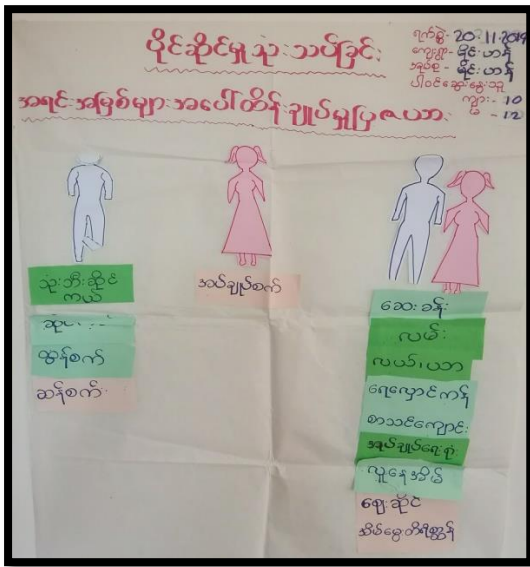 ပိုင်ဆိုင်မှုသုံးသပ်ခြင်း
အရင်းအမြစ်များအပေါ်ထိန်းချုပ်မှုပြဇယား
ရက်စွဲ- 20-11-2019
ကျေးရွာ- မိုင်းဟန်
အုပ်စု - မိုင်းဟန်
ပါဝင်ဆွေးနွေးသူ
ကျား - 10
မ - 12
သုံးဘီးဆိုင်ကယ်
ထွန်စက်
ဆန်စက်
အပ်ချုပ်စက်
ဆေးခန်း
လမ်း
လယ်၊ယာ
ရေလှောင်ကန်
စာသင်ကျောင်း
အုပ်ချုပ်ရေးရုံး
လူနေအိမ်
ဈေးဆိုင်
အိမ်မွေးတိရိစ္ဆာန်